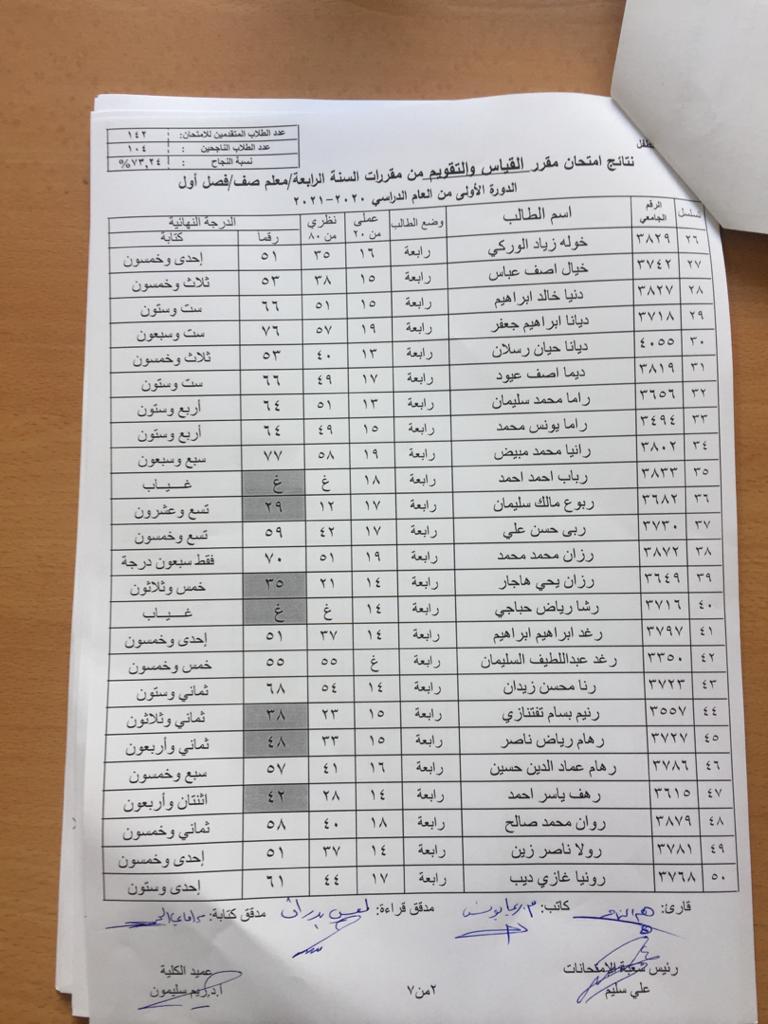 عدد الطلاب المتقدمين للامتحان: ١٤٢
عدد الطلاب الناجحين : ١٠٤
نسبة النجاح : ٧٣,٢٤%
نتائج امتحان مقرر القياس والتقويم من مقررات السنة الرابعة/معلم صف/فصل أول
الدورة الأولى من العام الدراسي ٢٠٢٠-٢٠٢١
تسلسل الرقم الجامعي اسم الطالب وضع الطالب عملي من ٢٠ نظري من ٨٠ الدرجة النهائية رقما كتابة
٢٦ ٣٨٢٩ خوله زياد الوركي رابعة ١٦ ٣٥ ٥١ إحدى وخمسون
٢٧ ٣٧٤٢ خيال اصف عباس رابعة ١٥ ٣٨ ٥٣ ثلاث وخمسون
٢٨ ٣٨٢٧ دنيا خالد ابراهيم رابعة ١٥ ٥١ ٦٦ ست وستون
٢٩ ٣٧١٨ ديانا ابراهيم جعفر رابعة ١٩ ٥٧ ٧٦ ست وسبعون
٣٠ ٤٠٥٥ ديانا حيان رسلان رابعة ١٣ ٤٠ ٥٣ ثلاث وخمسون
٣١ ٣٨١٩ ديما اصف عيود رابعة ١٧ ٤٩ ٦٦ ست وستون
٣٢ ٣٦٥٦ راما محمد سليمان رابعة ١٣ ٥١ ٦٤ أربع وستون
٣٣ ٣٤٩٤ راما يونس محمد رابعة ١٥ ٤٩ ٦٤ أربع وستون
٣٤ ٣٨٠٢ رانيا محمد مبيض رابعة ١٩ ٥٨ ٧٧ سبع وسبعون
٣٥ ٣٨٣٣ رباب احمد احمد رابعة ١٨ غ غ غـيـاب
٣٦ ٣٦٨٢ ربوع مالك سليمان رابعة ١٧ ١٢ ٢٩ تسع وعشرون
٣٧ ٣٧٣٠ ربى حسن علي رابعة ١٧ ٤٢ ٥٩ تسع وخمسون
٣٨ ٣٨٧٢ رزان محمد محمد رابعة ١٩ ٥١ ٧٠ فقط سبعون درجة
٣٩ ٣٦٤٩ رزان يحي هاجار رابعة ١٤ ٢١ ٣٥ خمس وثلاثون
٤٠ ٣٧١٦ رشا رياض حباجي رابعة ١٤ غ غ غـيـاب
٤١ ٣٧٩٧ رغد ابراهيم ابراهيم رابعة ١٤ ٣٧ ٥١ إحدى وخمسون
٤٢ ٣٣٥٠ رغد عبداللطيف السليمان رابعة غ ٥٥ ٥٥ خمس وخمسون
٤٣ ٣٧٢٣ رنا محسن زيدان رابعة ١٤ ٥٤ ٦٨ ثماني وستون
٤٤ ٣٥٥٧ رنيم بسام تفتنازي رابعة ١٥ ٢٣ ٣٨ ثماني وثلاثون
٤٥ ٣٧٢٧ رهام رياض ناصر رابعة ١٥ ٣٣ ٤٨ ثماني وأربعون
٤٦ ٣٧٨٦ رهام عماد الدين حسين رابعة ١٦ ٤١ ٥٧ سبع وخمسون
٤٧ ٣٦١٥ رهف ياسر احمد رابعة ١٤ ٢٨ ٤٢ اثنتان وأربعون
٤٨ ٣٨٧٩ روان محمد صالح رابعة ١٨ ٤٠ ٥٨ ثماني وخمسون
٤٩ ٣٧٨١ رولا ناصر زين رابعة ١٤ ٣٧ ٥١ إحدى وخمسون
٥٠ ٣٧٦٨ رونيا غازي ديب رابعة ١٧ ٤٤ ٦١ إحدى وستون
قارئ: كاتب: مدقق قراءة: مدقق كتابة:
رئيس شعبة الامتحانات عميد الكلية
علي سليم ٢من٧ أ.د.ريم سليمون